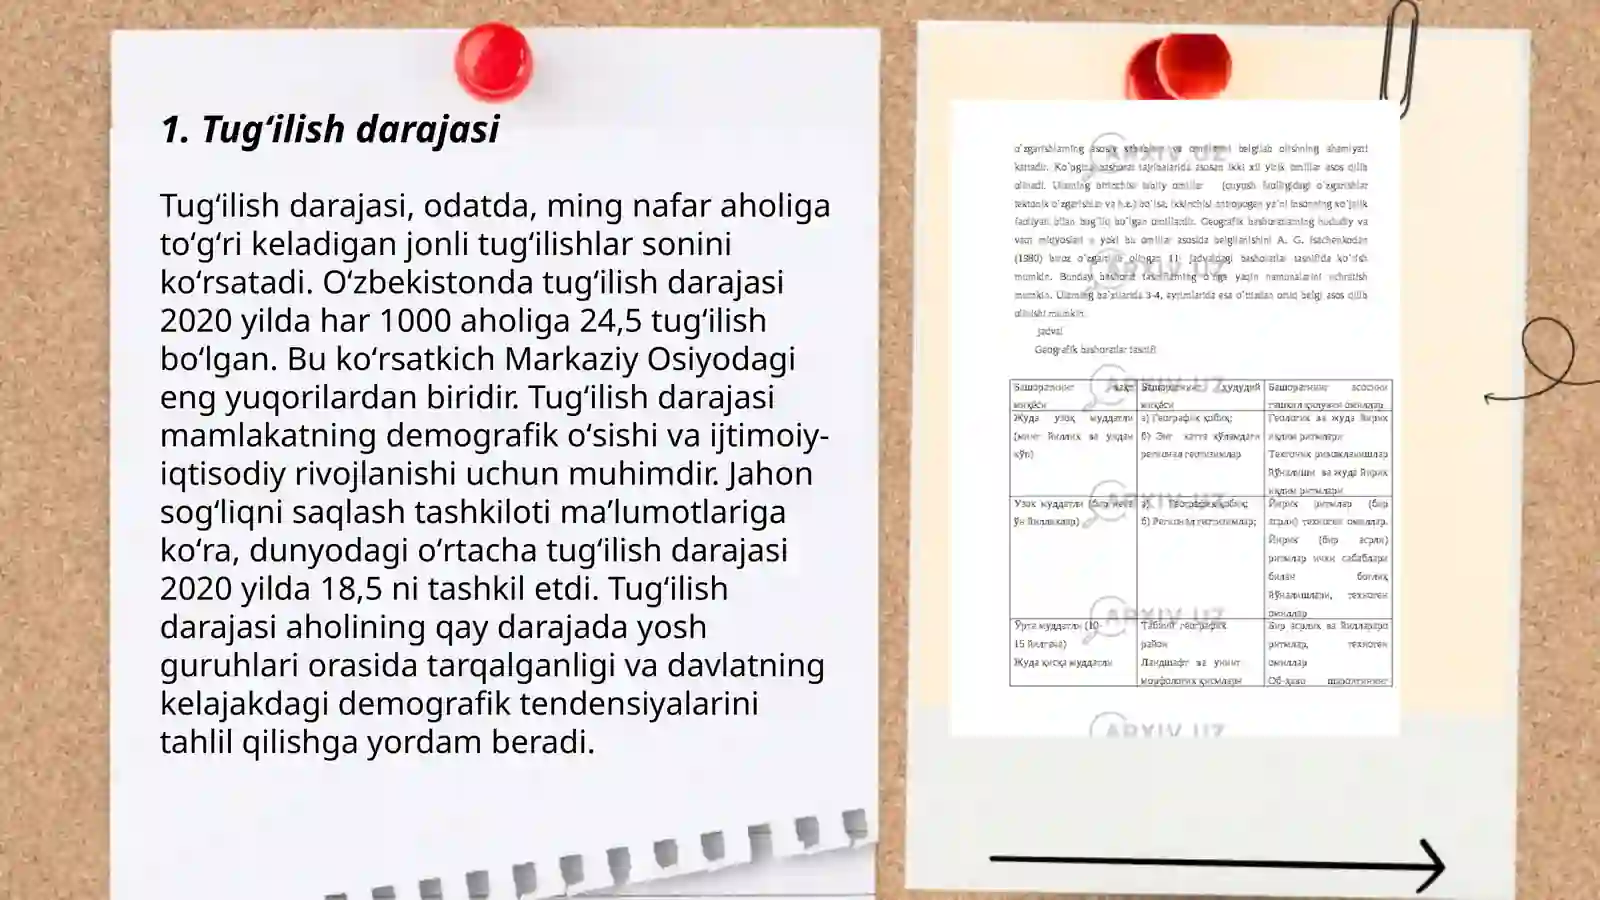 1. Tugʻilish darajasi
Tugʻilish darajasi, odatda, ming nafar aholiga
toʻgʻri keladigan jonli tugʻilishlar sonini
koʻrsatadi. Oʻzbekistonda tugʻilish darajasi
2020 yilda har 1000 aholiga 24,5 tugʻilish
boʻlgan. Bu koʻrsatkich Markaziy Osiyodagi
eng yuqorilardan biridir. Tugʻilish darajasi
mamlakatning demografik oʻsishi va ijtimoiy-
iqtisodiy rivojlanishi uchun muhimdir. Jahon
sogʻliqni saqlash tashkiloti maʼlumotlariga
koʻra, dunyodagi oʻrtacha tugʻilish darajasi
2020 yilda 18,5 ni tashkil etdi. Tugʻilish
darajasi aholining qay darajada yosh
guruhlari orasida tarqalganligi va davlatning
kelajakdagi demografik tendensiyalarini
tahlil qilishga yordam beradi.
o`zgarishlarning asosiy va belgilab olishning ahamiyati
kattadir. Ko`pgina bashorat tajribalarida asosan ikki xil yirik omillar asos qilib
olinadi. Ularning birinchisi tabiiy omillar (quyosh faolligidagi o`zgarishlar
tektonik o`zgarishlar va h.z.) bo`lsa, ikkinchisi antropogen ya`ni insonning xo`jalik
faoliyati bilan bog`liq bo`lgan omillardir. Geografik bashoratlarning hududiy va
vaqt miqyoslari u yoki bu omillar asosida belgilanishini A. G. Isachenkodan
(1980) biroz o`zgartirib olingan 11- jadvaldagi bashoratlar tasnifida ko`rish
mumkin. Bunday bashorat tasniflarning o`nga yaqin namunalarini uchratish
mumkin. Ularning ba`zilarida 3-4, ayrimlarida esa o`ttadan ortiq belgi asos qilib
olinishi mumkin.
Jadval
Geografik bashoratlar tasnifi
Башоратнинг вақт миқёси
Башоратнинг ҳудудий миқёси
Башоратнинг асосини ташкил қилувчи омиллар
Жуда узоқ муддатли (минг йиллик ва ундан кўп)
а) Географик қобиқ;
б) Энг катта кўламдаги регионал геотизимлар
Геологик ва жуда йирик иқлим ритмлари
Тектоник ривожланишлар йўналиши ва жуда йирик иқлим ритмлари
Узоқ муддатли (бир неча ўн йилликлар)
а) Географик қобиқ;
б) Регионал геотизимлар;
Йирик ритмлар (бир асрли) техноген омиллар.
Йирик (бир асрли) ритмлар ички сабаблари билан боғлиқ йўналишлари, техноген омиллар
Ўрта муддатли (10-15 йилгача)
Жуда қисқа муддатли
Табиий географик район
Ландшафт ва унинг морфологик қисмлари
Бир асрлик ва йиллараро ритмлар, техноген омиллар
Об-ҳаво шароитининг
ARXIV.UZ
ARXIV.UZ
ARXIV.UZ
ARXIV.UZ
ARXIV.UZ
ARXIV.UZ